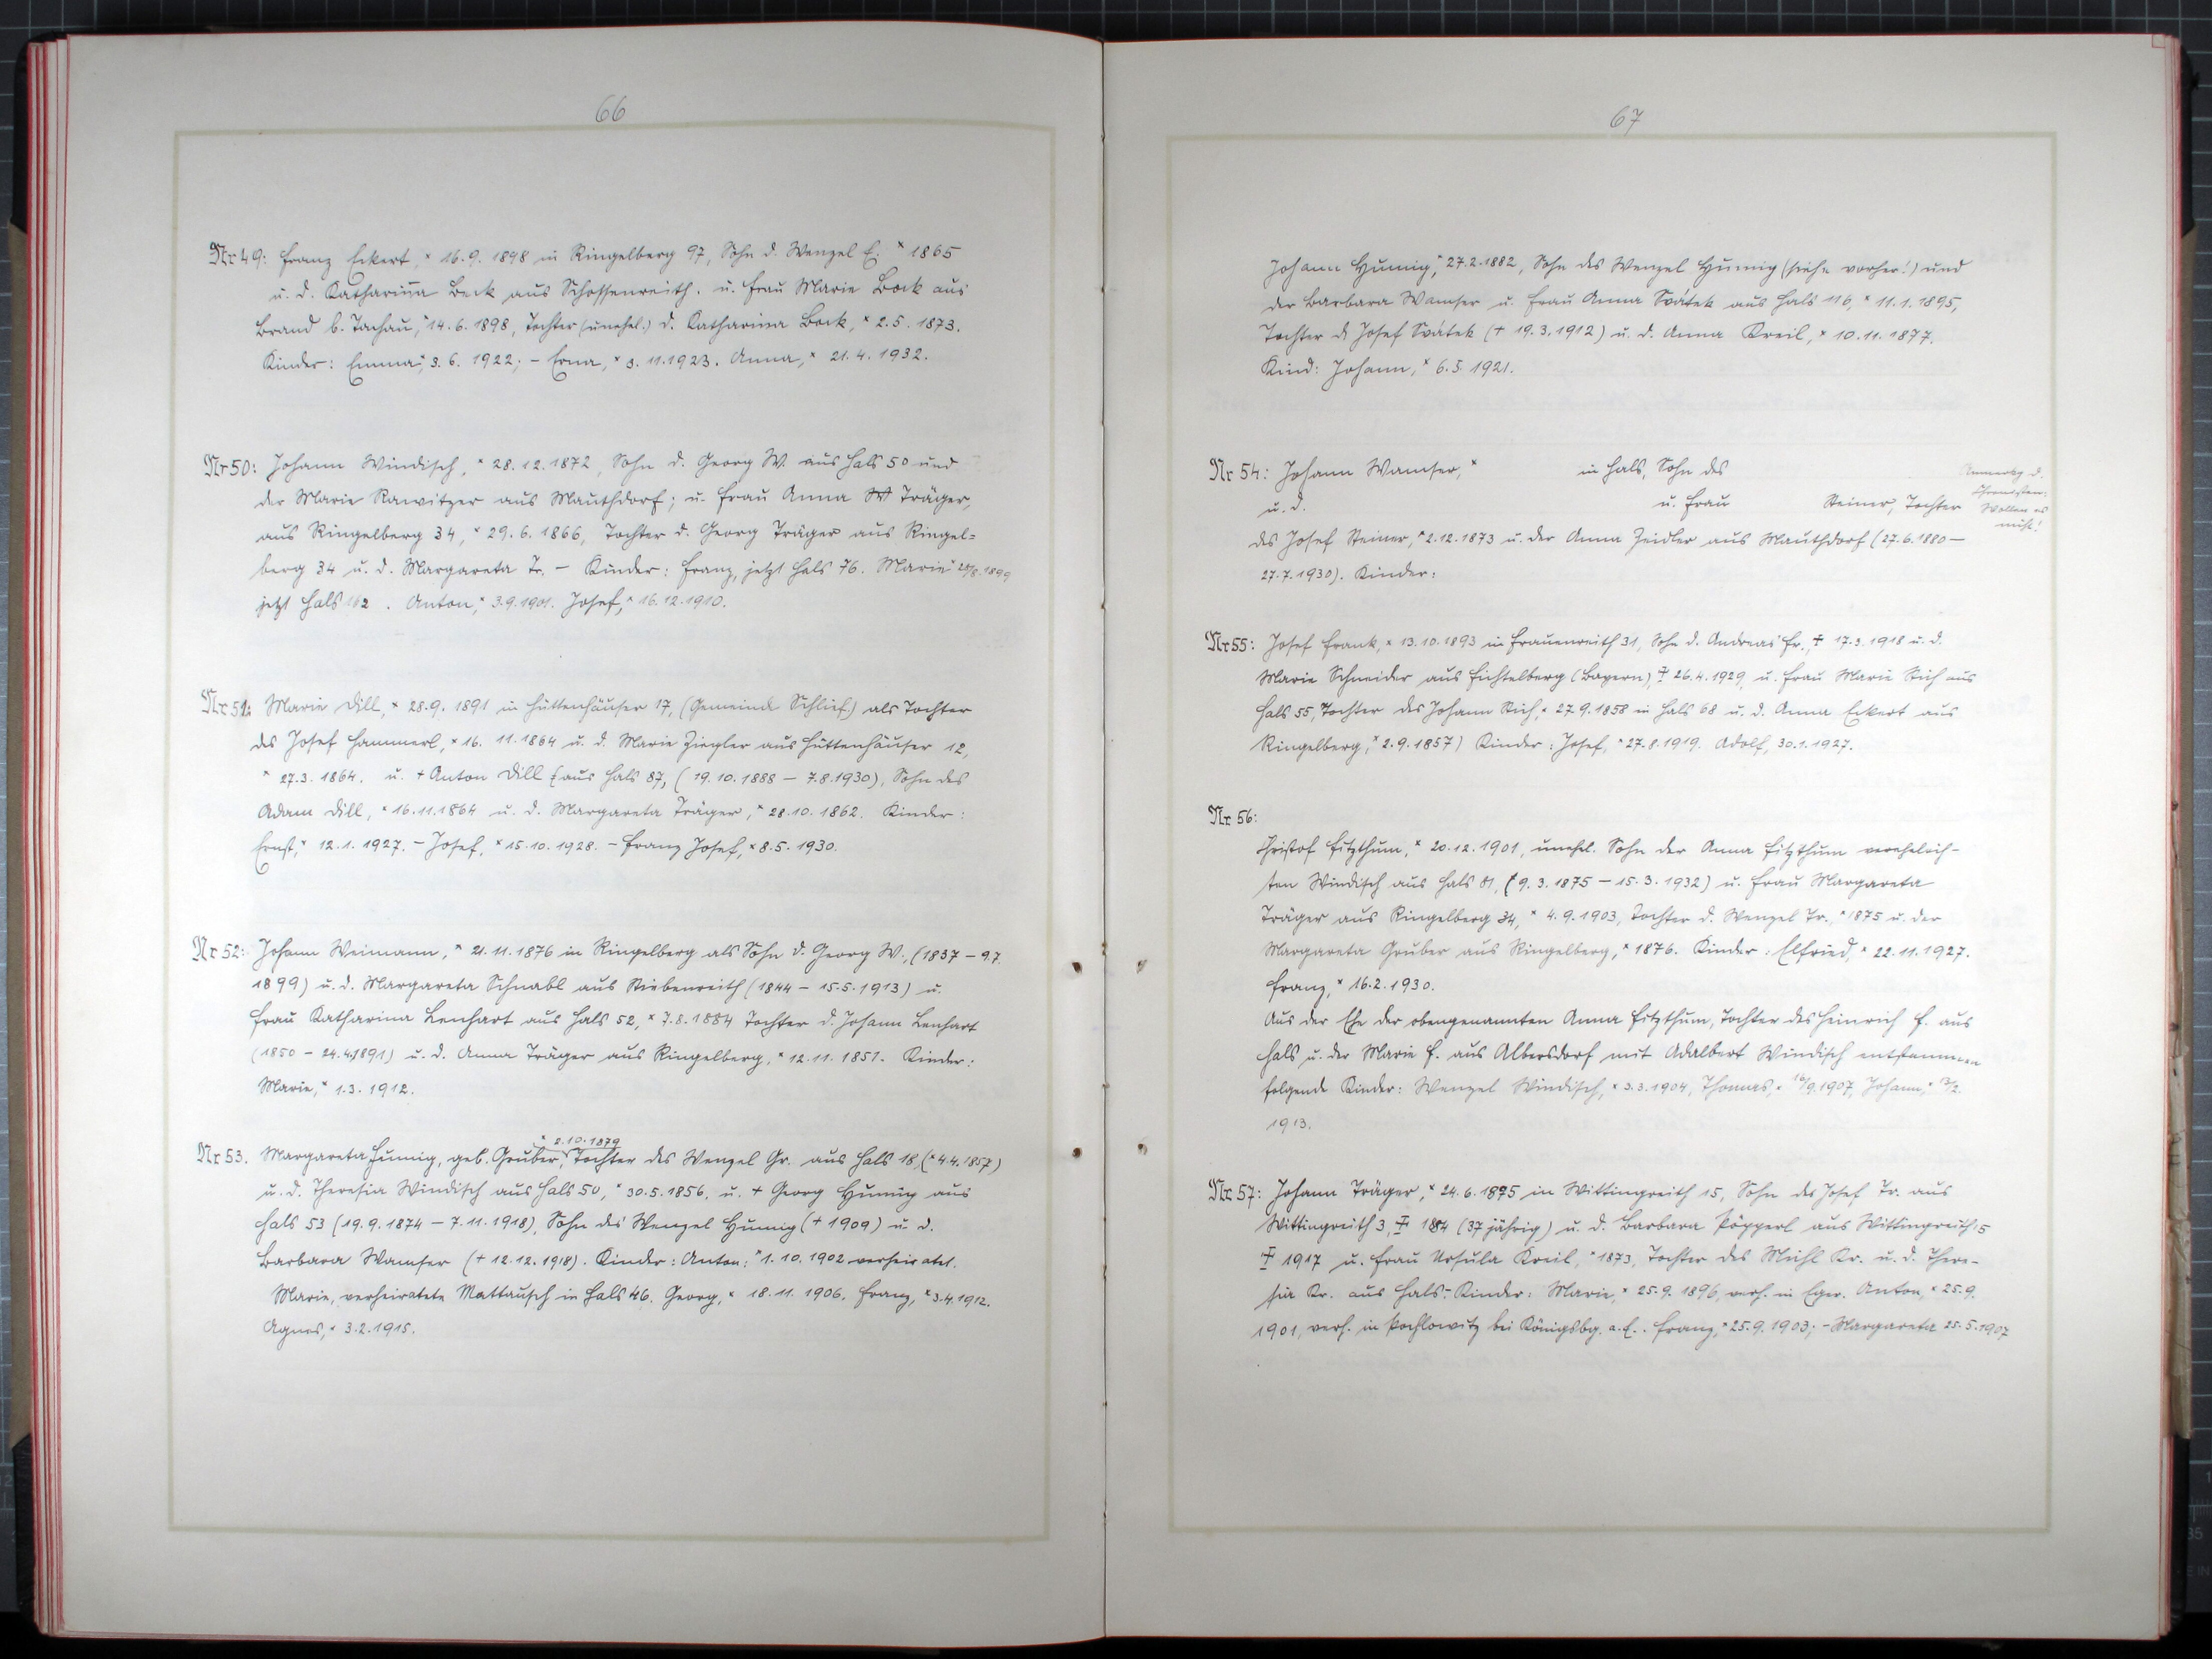 66
Nr 49: Franz Eckert, * 16.9.1898 in Ringelberg 97, Sohn d. Wenzel E. * 1865
u. d. Katharina Beck aus Schossenreith. u. Frau Marie Bock aus
Brand b. Tachau, * 14.6.1898, Tochter (unehel.) d. Katharina Bock, * 2.5.1873.
Kinder: Emma, * 3.6.1922; – Erna, * 3.11.1923. Anna, * 21.4.1932.
Nr 50: Johann Windisch, * 28.12.1872, Sohn d. Georg W. aus Hals 50 und
der Marie Rawitzer aus Mauthdorf; u. Frau Anna Träger,
aus Ringelberg 34, * 29.6.1866, Tochter d. Georg Träger aus Ringel=
berg 34 u. d. Margareta Tr. – Kinder: Franz, jetzt Hals 76. Marie * 28/8.1899
jetzt Hals 162. Anton, * 3.9.1901. Josef, * 16.12.1910.
Nr 51: Marie Dill, * 28.9.1891 in Hüttenhäuser 17, (Gemeinde Schlief) als Tochter
des Josef Hammerl, * 16.11.1864 u. d. Marie Ziegler aus Hüttenhäuser 12,
* 27.3.1864. u. + Anton Dill (aus Hals 87, (19.10.1888 – 7.8.1930), Sohn des
Adam Dill, * 16.11.1864 u. d. Margareta Träger, * 28.10.1862. Kinder:
Ernst, * 12.1.1927. – Josef, * 15.10.1928. – Franz Josef, * 8.5.1930.
Nr 52: Johann Weimann, * 21.11.1876 in Ringelberg als Sohn d. Georg W., (1837 – 9.7.
1899) u. d. Margareta Schnabl aus Stiebenreith (1844 – 15.5.1913) u.
Frau Katharina Lenhart aus Hals 52, * 7.8.1884 Tochter d. Johann Lenhart
(1850 – 24.4.1891) u. d. Anna Träger aus Ringelberg, * 12.11.1851. Kinder:
Marie, * 1.3.1912.
* 2.10.1879
Nr 53. Margareta Hunnig, geb. Gruber, Tochter des Wenzel Gr. aus Hals 18, (* 4.4.1857)
u. d. Theresia Windisch aus Hals 50, * 30.5.1856. u. + Georg Hunnig aus
Hals 53 (19.9.1874 – 7.11.1918), Sohn des Wenzel Hunnig (+ 1909) u. d.
Barbara Wamser (+ 12.12.1918). Kinder: Anton: * 1.10.1902 verheiratet.
Marie, verheiratete Mattausch in Hals 46. Georg, * 18.11.1906. Franz, * 3.4.1912.
Agnes, * 3.2.1915.
67
Johann Hunnig, * 27.2.1882, Sohn des Wenzel Hunnig (siehe vorher!) und
der Barbara Wamser u. Frau Anna Svátek aus Hals 116, * 11.1.1895,
Tochter d. Josef Svátek (+ 19.3.1912) u. d. Anna Kreil, * 10.11.1877.
Kind: Johann, * 6.5.1921.
Nr 54: Johann Wamser, * in Hals, Sohn des
u. d. u. Frau Steiner, Tochter
Anmerkg d.
Chronisten:
Wollen es
nicht!
des Josef Steiner, * 2.12.1873 u. der Anna Zeidler aus Mauthdorf (27.6.1880 –
27.7.1930). Kinder:
Nr 55: Josef Frank, * 13.10.1893 in Frauenreith 31, Sohn d. Andreas Fr., + 17.3.1918 u. d.
Marie Schneider aus Fichtelberg (Bayern), + 26.4.1929, u. Frau Marie Stich aus
Hals 55, Tochter des Johann Stich, * 27.9.1858 in Hals 68 u. d. Anna Eckert aus
Ringelberg, * 2.9.1857) Kinder: Josef, * 27.8.1919. Adolf, 30.1.1927.
Nr 56:
Christof Fitzthum, * 20.12.1901, unehel. Sohn der Anna Fitzthum verehelich-
ten Windisch aus Hals 81, (* 9.3.1875 – 15.3.1932) u. Frau Margareta
Träger aus Ringelberg 34, * 4.9.1903, Tochter d. Wenzel Tr., * 1875 u. der
Margareta Gruber aus Ringelberg, * 1876. Kinder: Elfried, * 22.11.1927.
Franz, * 16.2.1930.
Aus der Ehe der obengenannten Anna Fitzthum, Tochter des Heinrich F. aus
Hals u. der Marie F. aus Albersdorf mit Adalbert Windisch entstammen
folgende Kinder: Wenzel Windisch, * 3.3.1904, Thomas, * 16/9.1907, Johann, * 13/2.
1913.
Nr 57: Johann Träger, * 24.6.1875 in Wittingreith 15, Sohn des Josef Tr. aus
Wittingreith 3, + 1884 (37 jährig) u. d. Barbara Pöpperl aus Wittingreith 5
+ 1917 u. Frau Ursula Kreil, * 1873, Tochter des Michl Kr. u. d. There-
sia Kr. aus Hals. – Kinder: Marie, * 25.9.1896, verh. in Eger. Anton, * 25.9.
1901, verh. in Pochlowitz bei Königsbg. a.E.. Franz, * 25.9.1903; – Margareta 25.5.1907